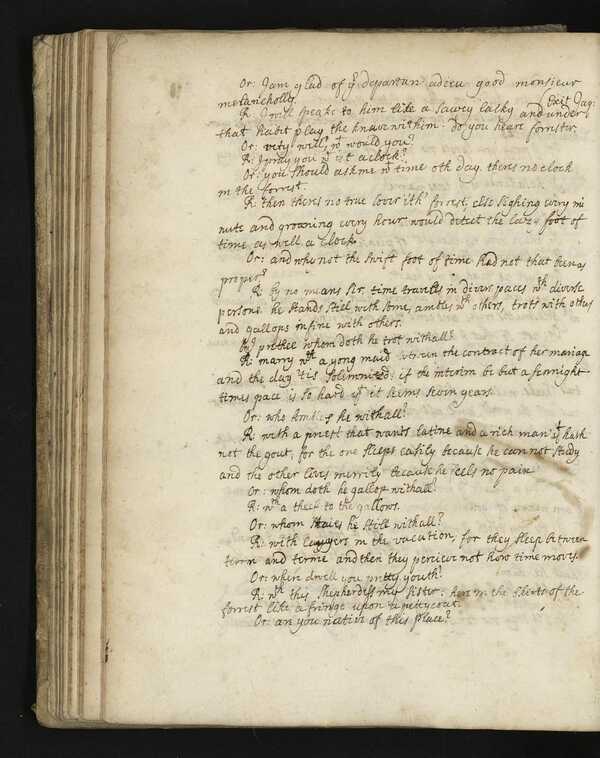 Or: I am glad of yr departure adieu good monsieur
melancholly. Exit Jaq:
R: I will speake to him like a sawcy lakky and under
that habit play the knave with him. do you heare forrester
Or: very well, wt would you?
R: I pray you wt is't a clock?
Or: you should ask me wt time oth day. theres no clock
in the forrest.
R: then theres no true lover ith' forrest, else sighing every mi
nute and groaning every hour would detect the lazy foot of
time as well a clock.
Or: and why not the swift foot of time had not that been as
proper?
R: By no means Sr, time travells in divers paces wth diverse
persons. he stands still with some, ambles wth others, trots with others
and gallops in fine with others.
prethee whom doth he trot withall?
R: marry wth a yong maid between the contract of her mariage
and the day 'tis solemnized: if the interim be but a sennight
times pace is so hard yt it seems seven years.
Or: who ambles he withall?
R: with a priest that wants latine and a rich man yt hath
not the gout, for the one sleeps easily because he cannot study
and the other lives merrily because he feels no pain
Or: whom doth he gallop withall?
R: wth a theef to the gallows.
Or: whom staies he still withall?
R: with lawyers in the vacation, for they sleep between
term and terme and then they perceive not how time moves.
Or: where dwell you pretty youth?
R: wth this shepherdess my sister: here in the skirts of the
forrest like a fringe upon a petycoat.
Or: are you native of this place?